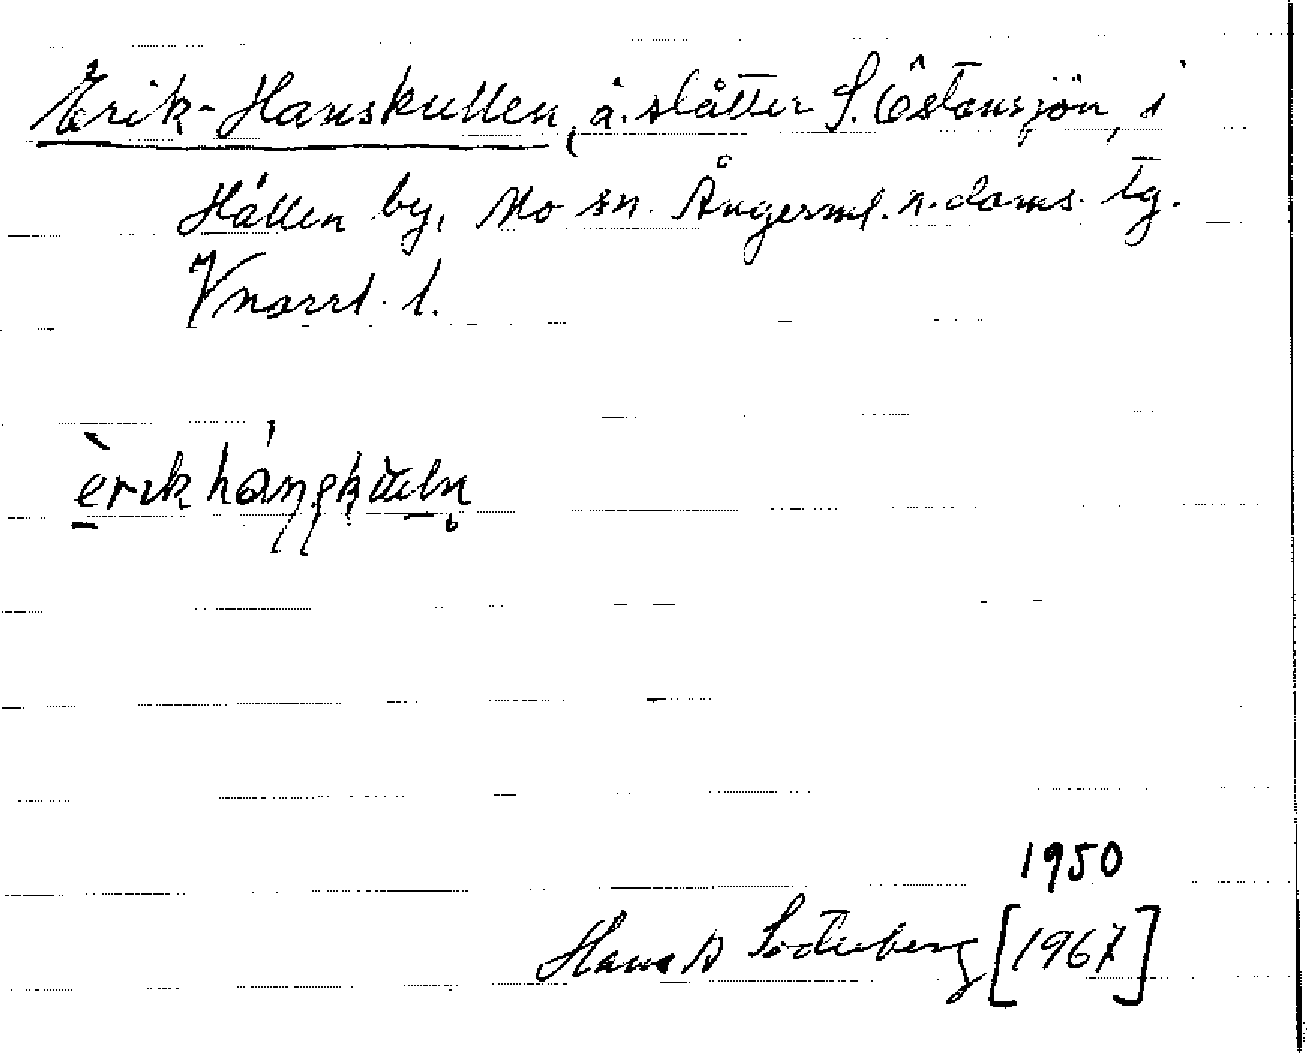 Erik-Hanskullen, å. slåtter S. Östansjön, i
Hållen by, Mo sn. Ångerml. n. doms. tg.
Vnorrl. l.
èrɩk háŋsku̇lḷn̥
1950
Hans A Söderberg [1967]